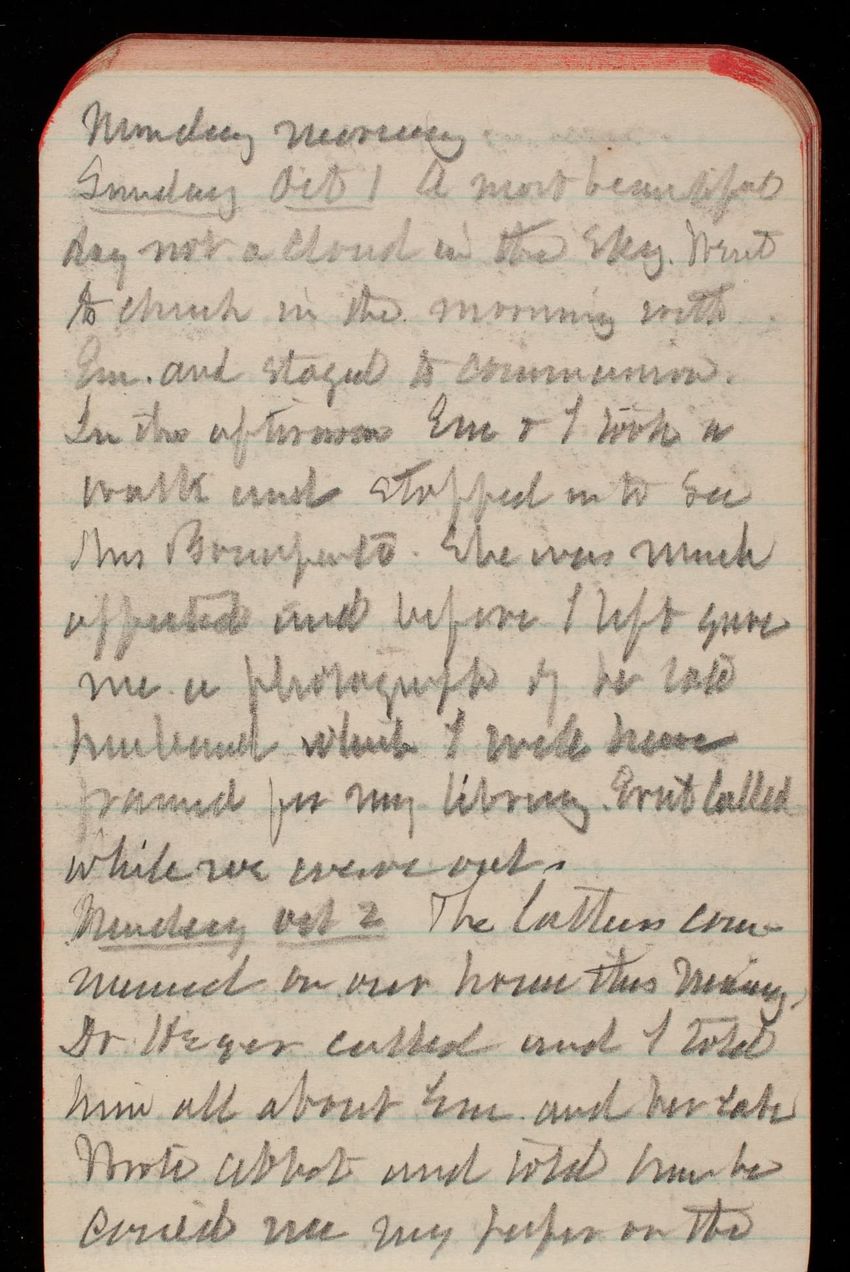 Monday morning
Sunday Oct 1 A most beautiful
day not a cloud in the sky. Went
to church in the morning with
Em. and stayed to communion.
In the afternoon Em & I took a
walk and stopped in to see
Mrs She was much
affected and before I left gave
me a photograph of her late
husband which I will have
framed for my library. Ernst called
while we were out.
Monday Oct 2 The lathers com-
menced on our house this morning.
Dr Heger called and I told
him all about Em. and her
Wrote Abbot and told him he
could use my paper on the